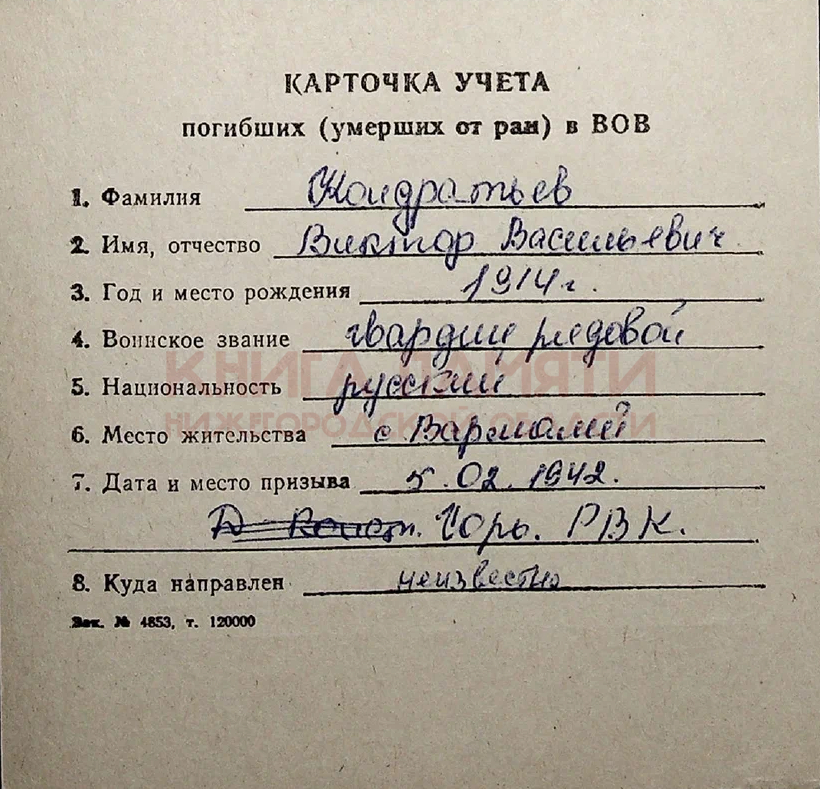 КАРТОЧКА УЧЕТА
погибших (умерших от ран) в ВОВ
1. Фамилия Кондратьев
2. Имя, отчество Виктор Васильевич
3. Год и место рождения 1914 г.
4. Воинское звание гвардии рядовой
КНИГА ПАМЯТИ
5. Национальность русский
НИЖЕГОРОДСКОЙ ОБЛАСТИ
6. Место жительства с Вармалей
7. Дата и место призыва 5.02.1942.
Д-Конст. Горь. РВК.
8. Куда направлен неизвестно
Зак. № 4853, т. 120000